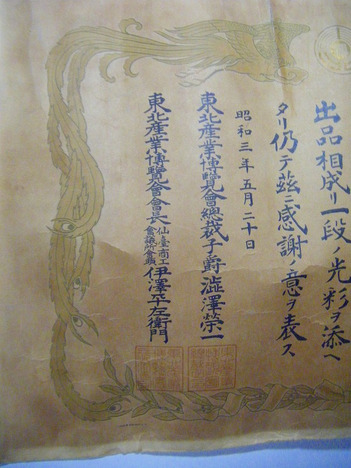 出品相成リ一段ノ光彩ヲ添ヘ
タリ仍テ玆ニ感謝ノ意ヲ表ス
昭和三年五月二十日
東北産業博覽會總裁子爵澁澤榮一
東北産業博覽會會長仙臺商工會議所會頭伊澤平左衞門